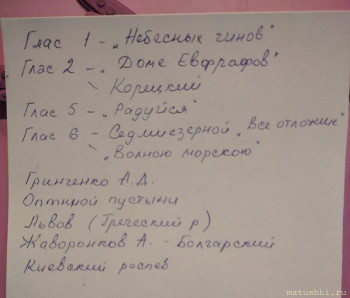 Глас 1 - „Небесных чинов"
Глас 2 - „Доме Евфрафов"
\ Корецкий
Глас 5 - „Радуйся"
Глас 6 - Седмиезерной „Все отложим"
\ „Волною морскою"
Гринченко А.Д.
Оптиной пустыни
Львов (Греческий р)
Жаворонков А. - Болгарский
Киевский роспев
matushki.ru